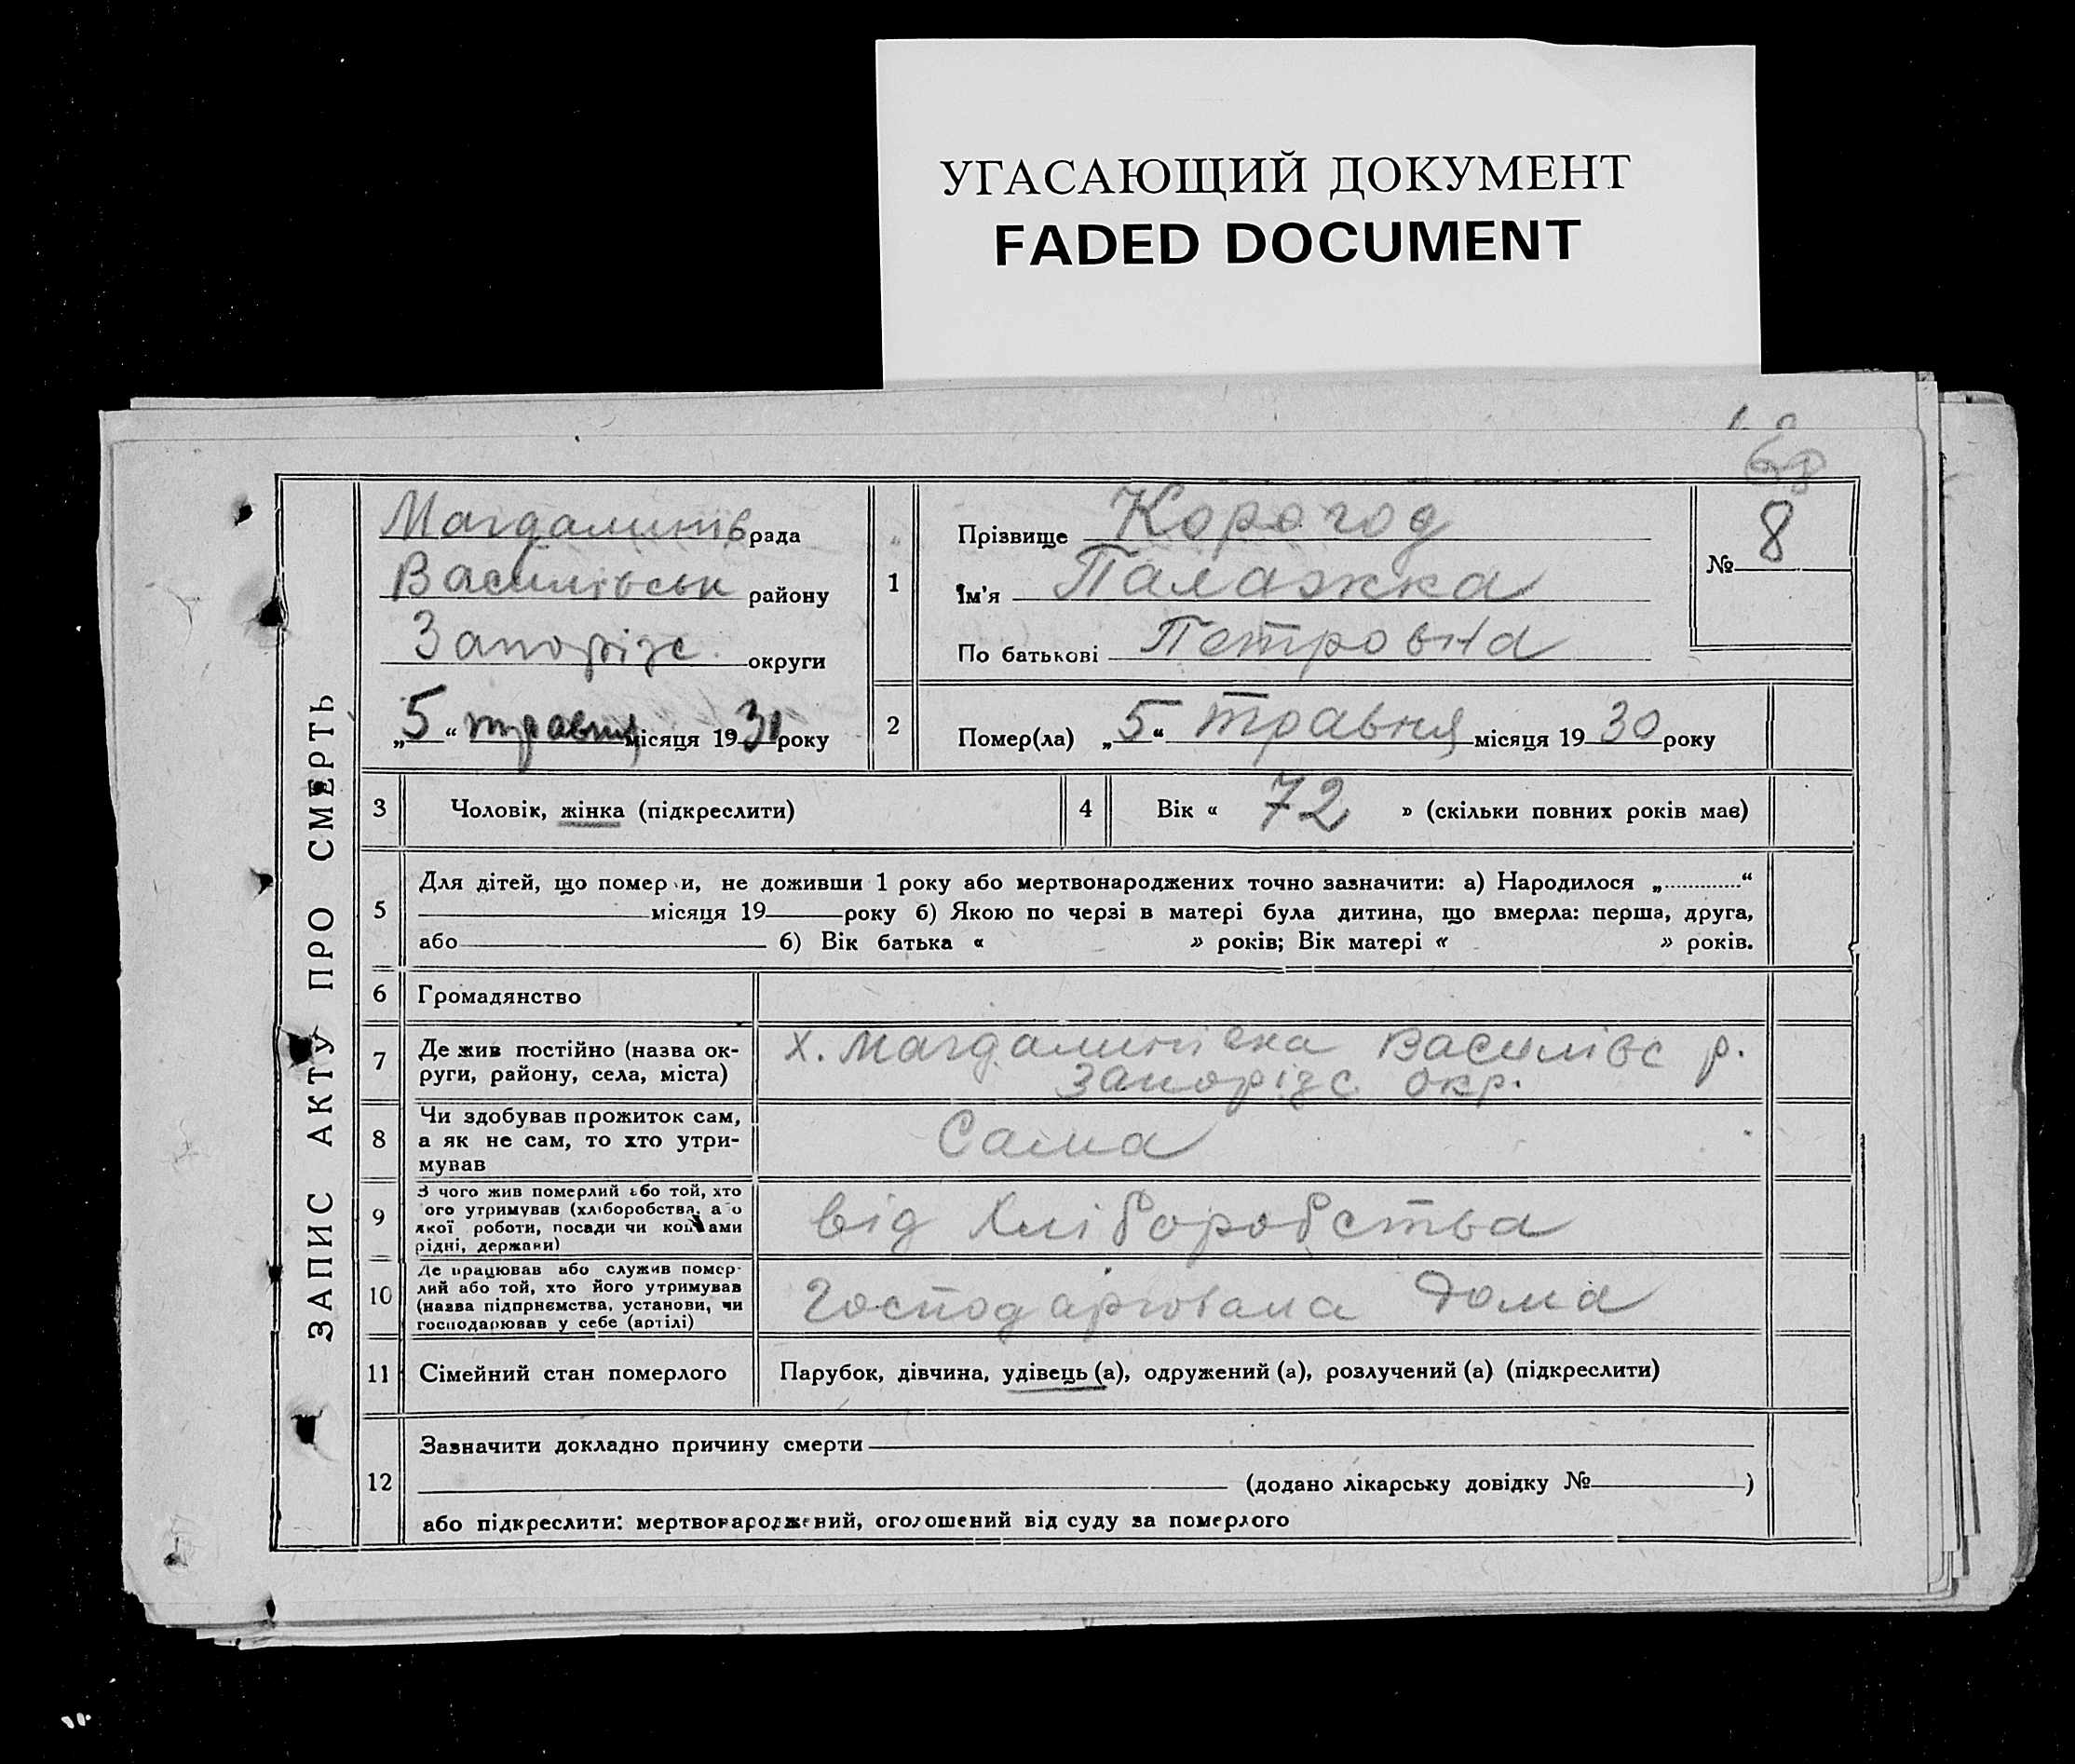 УГАСАЮЩИЙ ДОКУМЕНТ
FADED DOCUMENT
68
ЗАПИС АКТУ ПРО СМЕРТЬ
Магдалинів рада
Василівськ району
Запоріzс. округи
„5“ травня місяця 1930 року
1
Прізвище Корогод
Ім'я Палажка
По батькові Петровна
№ 8
2
Помер(ла) „5“ травня місяця 1930 року
3 Чоловік, жінка (підкреслити)
4 Вік « 72 » (скільки повних років має)
5
Для дітей, що померли, не доживши 1 року або мертвонароджених точно зазначити: а) Народилося „.............“
місяця 19 року б) Якою по черзі в матері була дитина, що вмерла: перша, друга,
або б) Вік батька « » років; Вік матері « » років.
6 Громадянство
7
Де жив постійно (назва ок-
руги, району, села, міста)
х. Магдалинівка Василівс р.
Запоріzс. окр.
8
Чи здобував прожиток сам,
а як не сам, то хто утри-
мував
Сама
9
З чого жив померлий або той, хто
ого утримував (хліборобства, а о
якої роботи, посади чи коштами
рідні, держави)
від хліборобства
10
Де працював або служив помер-
лий або той, хто його утримував
(назва підприємства, установи, чи
господарював у себе (артілі)
Господарювала дома
11 Сімейний стан померлого
Парубок, дівчина, удівець (а), одружений (а), розлучений (а) (підкреслити)
12
Зазначити докладно причину смерти
(додано лікарську довідку № )
або підкреслити: мертвонароджений, оголошений від суду за померлого